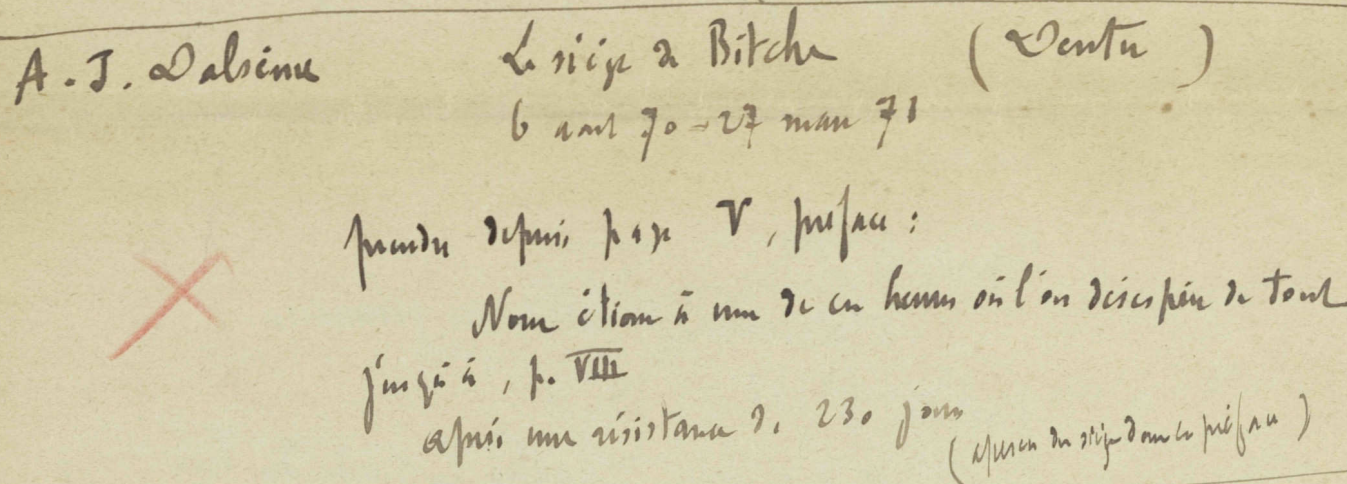 A. J. Dalsème Le siège de Bitche (Dentu)
6 août 70 - 27 mars 71
prendre depuis page V, préface :
Nous étions à une de ces heures où l'on désespère de tout
jusqu'à, p. VIII
après une résistance de 230 jours
(aperçu du siège dans la préface)